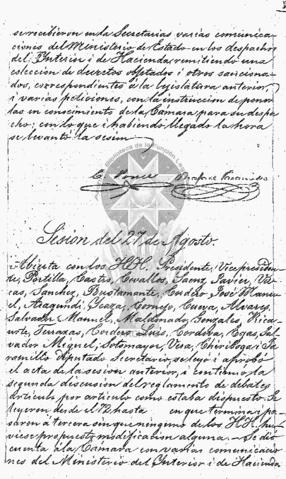 se recibieron en la Secretaría varias comunica-
ciones del Ministerio de Estado en los despachos
del Interior i de Hacienda remitiendo una
colección de decretos objetados i otros sanciona-
dos, correspondientes a la lejislatura anterior,
i varias peticiones, con la instruccion de poner-
las en conocimiento de la Cámara para su despa-
cho; con lo que i habiendo llegado la hora
se levantó la sesion
C. Ponce
Sesion del 27 de Agosto.
Abierta con los H.H. Presidente, Vicepresiden-
te, Portilla, Castro, Cevallos, Saenz Javier,
Sanchez, Bustamante, Cordero José Manu-
el, Icaza, Cornejo, Cueva, Alvarez,
Salvador Manuel, Maldonado, Gonzales,
Cordero Luis, Cordova, Egas, Sal-
vador Miguel, Sotomayor, Vega, Chiriboga i Ja-
ramillo Diputado Secretario, se leyó i aprobó
el acta de la sesion anterior, i continuó la
segunda discusion del reglamento de debates
artículo por artículo como estaba dispuesto. Se
leyeron desde el 72 hasta en que termina, pa-
saron a tercera sin que ninguno de los H.H. hu-
viese propuesto modificacion alguna. Se dió
cuenta a la Cámara con varias comunicacio-
nes del Ministerio del Interior i de Hacienda